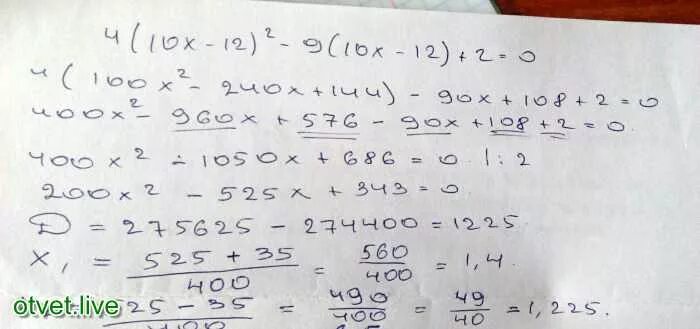 4(10x-12)² - 9(10x-12)+2=0
4(100x² - 240x+144) - 90x+108+2=0
400x² - 960x + 576 - 90x + 108 + 2 = 0.
400x² - 1050x + 686 = 0 |:2
200x² - 525x + 343=0.
D = 275625 - 274400 = 1225.
X₁ = (525 + 35)/400 = 560/400 = 1,4.
25 - 35 = 490/400 = 49/40 = 1,225.
otvet.live